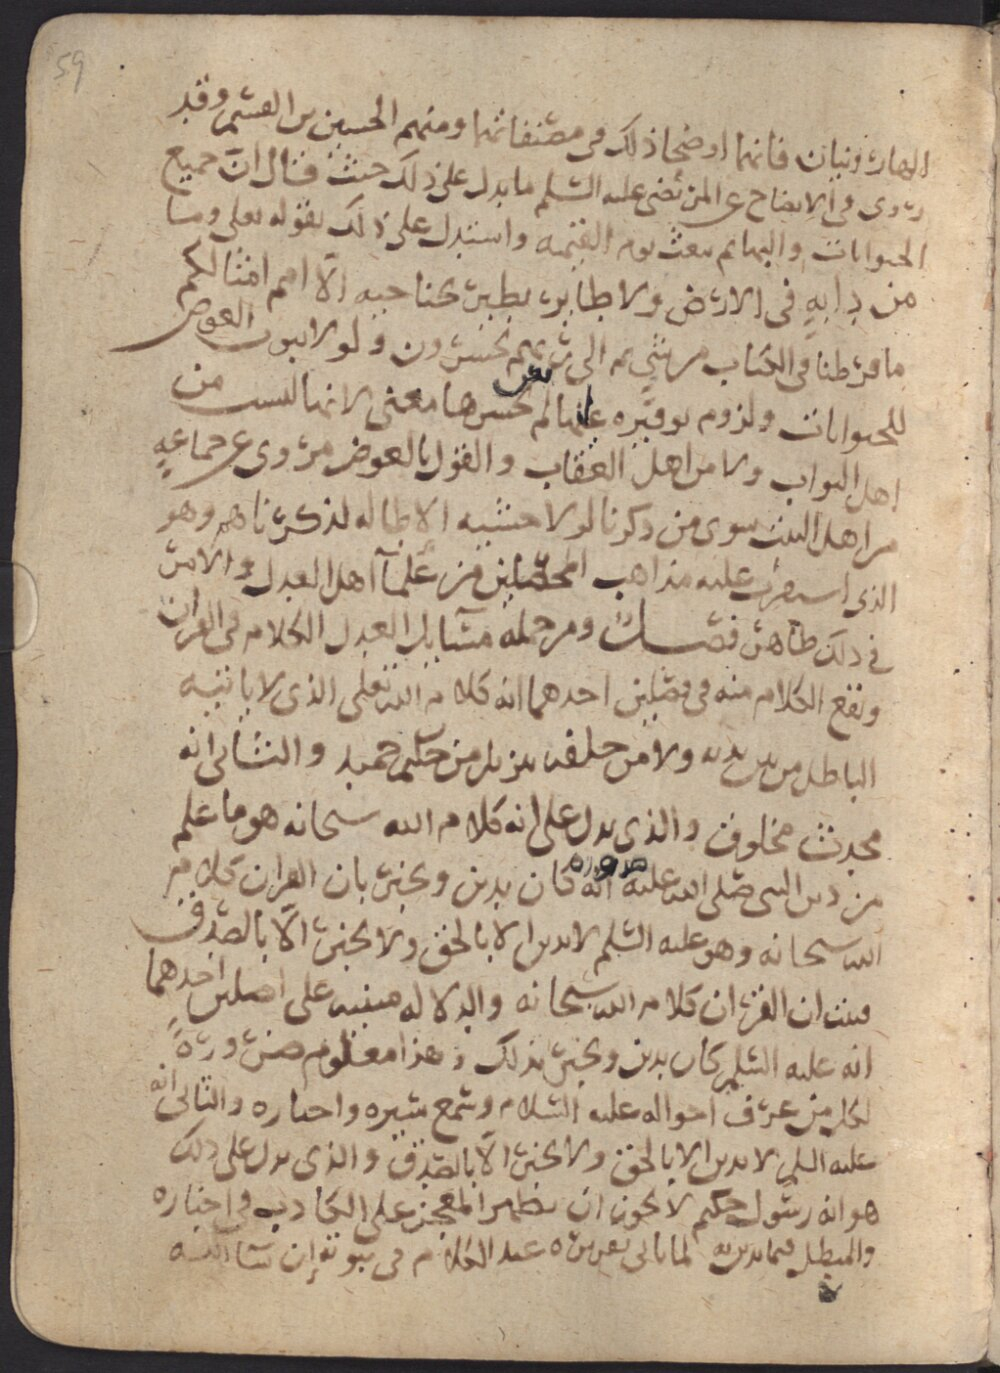 59
الهارونيان فانهما اوضحا ذلك في مصنفاتهما ومنهم الحسين بن القسم وقد
روى في الايضاح عن المرتضى عليه السلم ما يدل على ذلك حيث قال ان جميع
الحيوانات والبهايم يبعث يوم القيمه واستدل على ذلك بقوله تعلى وما
من دابةٍ في الارض ولا طاير يطير بجناحيه الا امم امثالكم
ما فرطنا في الكتاب من شيء ثم الى ربهم يحشرون ولولا ثبوت العوض
للحيوانات ولزوم توفيره عليها لم يكن لحشرها معنى لانها ليست من
اهل الثواب ولا من اهل العقاب والقول بالعوض مروي عن جماعةٍ
من اهل البيت سوى من ذكرنا لولا خشية الاطاله لذكرناهم وهو
الذي استقرت عليه مذاهب المحصلين من علمآ اهل العدل والامر
في ذلك ظاهر فصل ومن جملة مسايل العدل الكلام في القران
ويقع الكلام منه في فصلين احدهما انه كلام الله تعلى الذي لا ياتيه
الباطل من بين يديه ولا من خلفه تنزيل من حكيم حميد والثاني انه
محدث مخلوق والذي يدل على انه كلام الله سبحانه هو ما علم
من دين النبي صلى الله عليه واله ضرورة انه كان يدين ويخبر بان القران كلام
الله سبحانه وهو عليه السلم لا يدين الا بالحق ولا يخبر الا بالصدق
فثبت ان القران كلام الله سبحانه والدلاله مبنيه على اصلين احدهما
انه عليه السلم كان يدين ويخبر بذلك وهذا معلوم ضرورةً
لكل من عرف احواله عليه السلام وسمع سيره واخباره والثاني انه
عليه السلم لا يدين الا بالحق ولا يخبر الا بالصدق والذي يدل على ذلك
هو انه رسول حكيم لا يجوز ان يظهر المعجز على الكاذب في اخباره
والمبطل فيما يدين به لما ياتي تقريره عند الكلام في نبوته إن شا الله